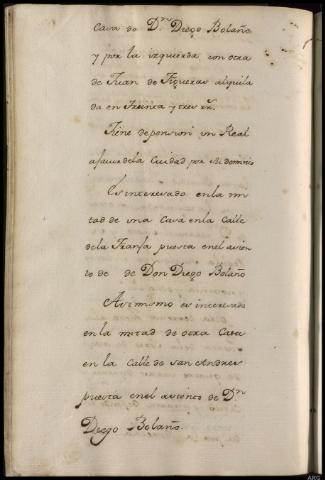 Casa de Dn. Diego Bolaño
y por la izquierda con otra
de Juan de Figueras alquila
da en Treinta y tres rs.
Tiene de pension un Real
a favor de la Ciudad por su dominio
Es interesado en la mi
tad de una Casa en la Calle
de la Franja puesta en el asien
to de de Don Diego Bolaño
Asimismo es interesado
en la mitad de otra Casa
en la Calle de San Andres
puesta en el asiento de Dn
Diego Bolaño.
ARG